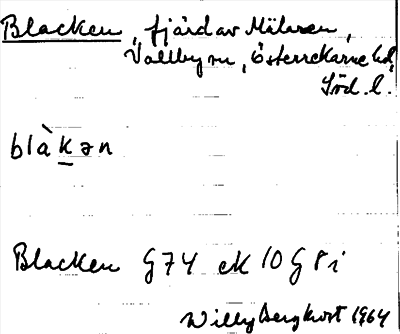 Blacken, fjärd av Mälaren,
Vallby sn, Österrekarne hd,
Söd. l.
blàkən
Blacken G74 ek 10G8i
Willy Bergkvist 1964